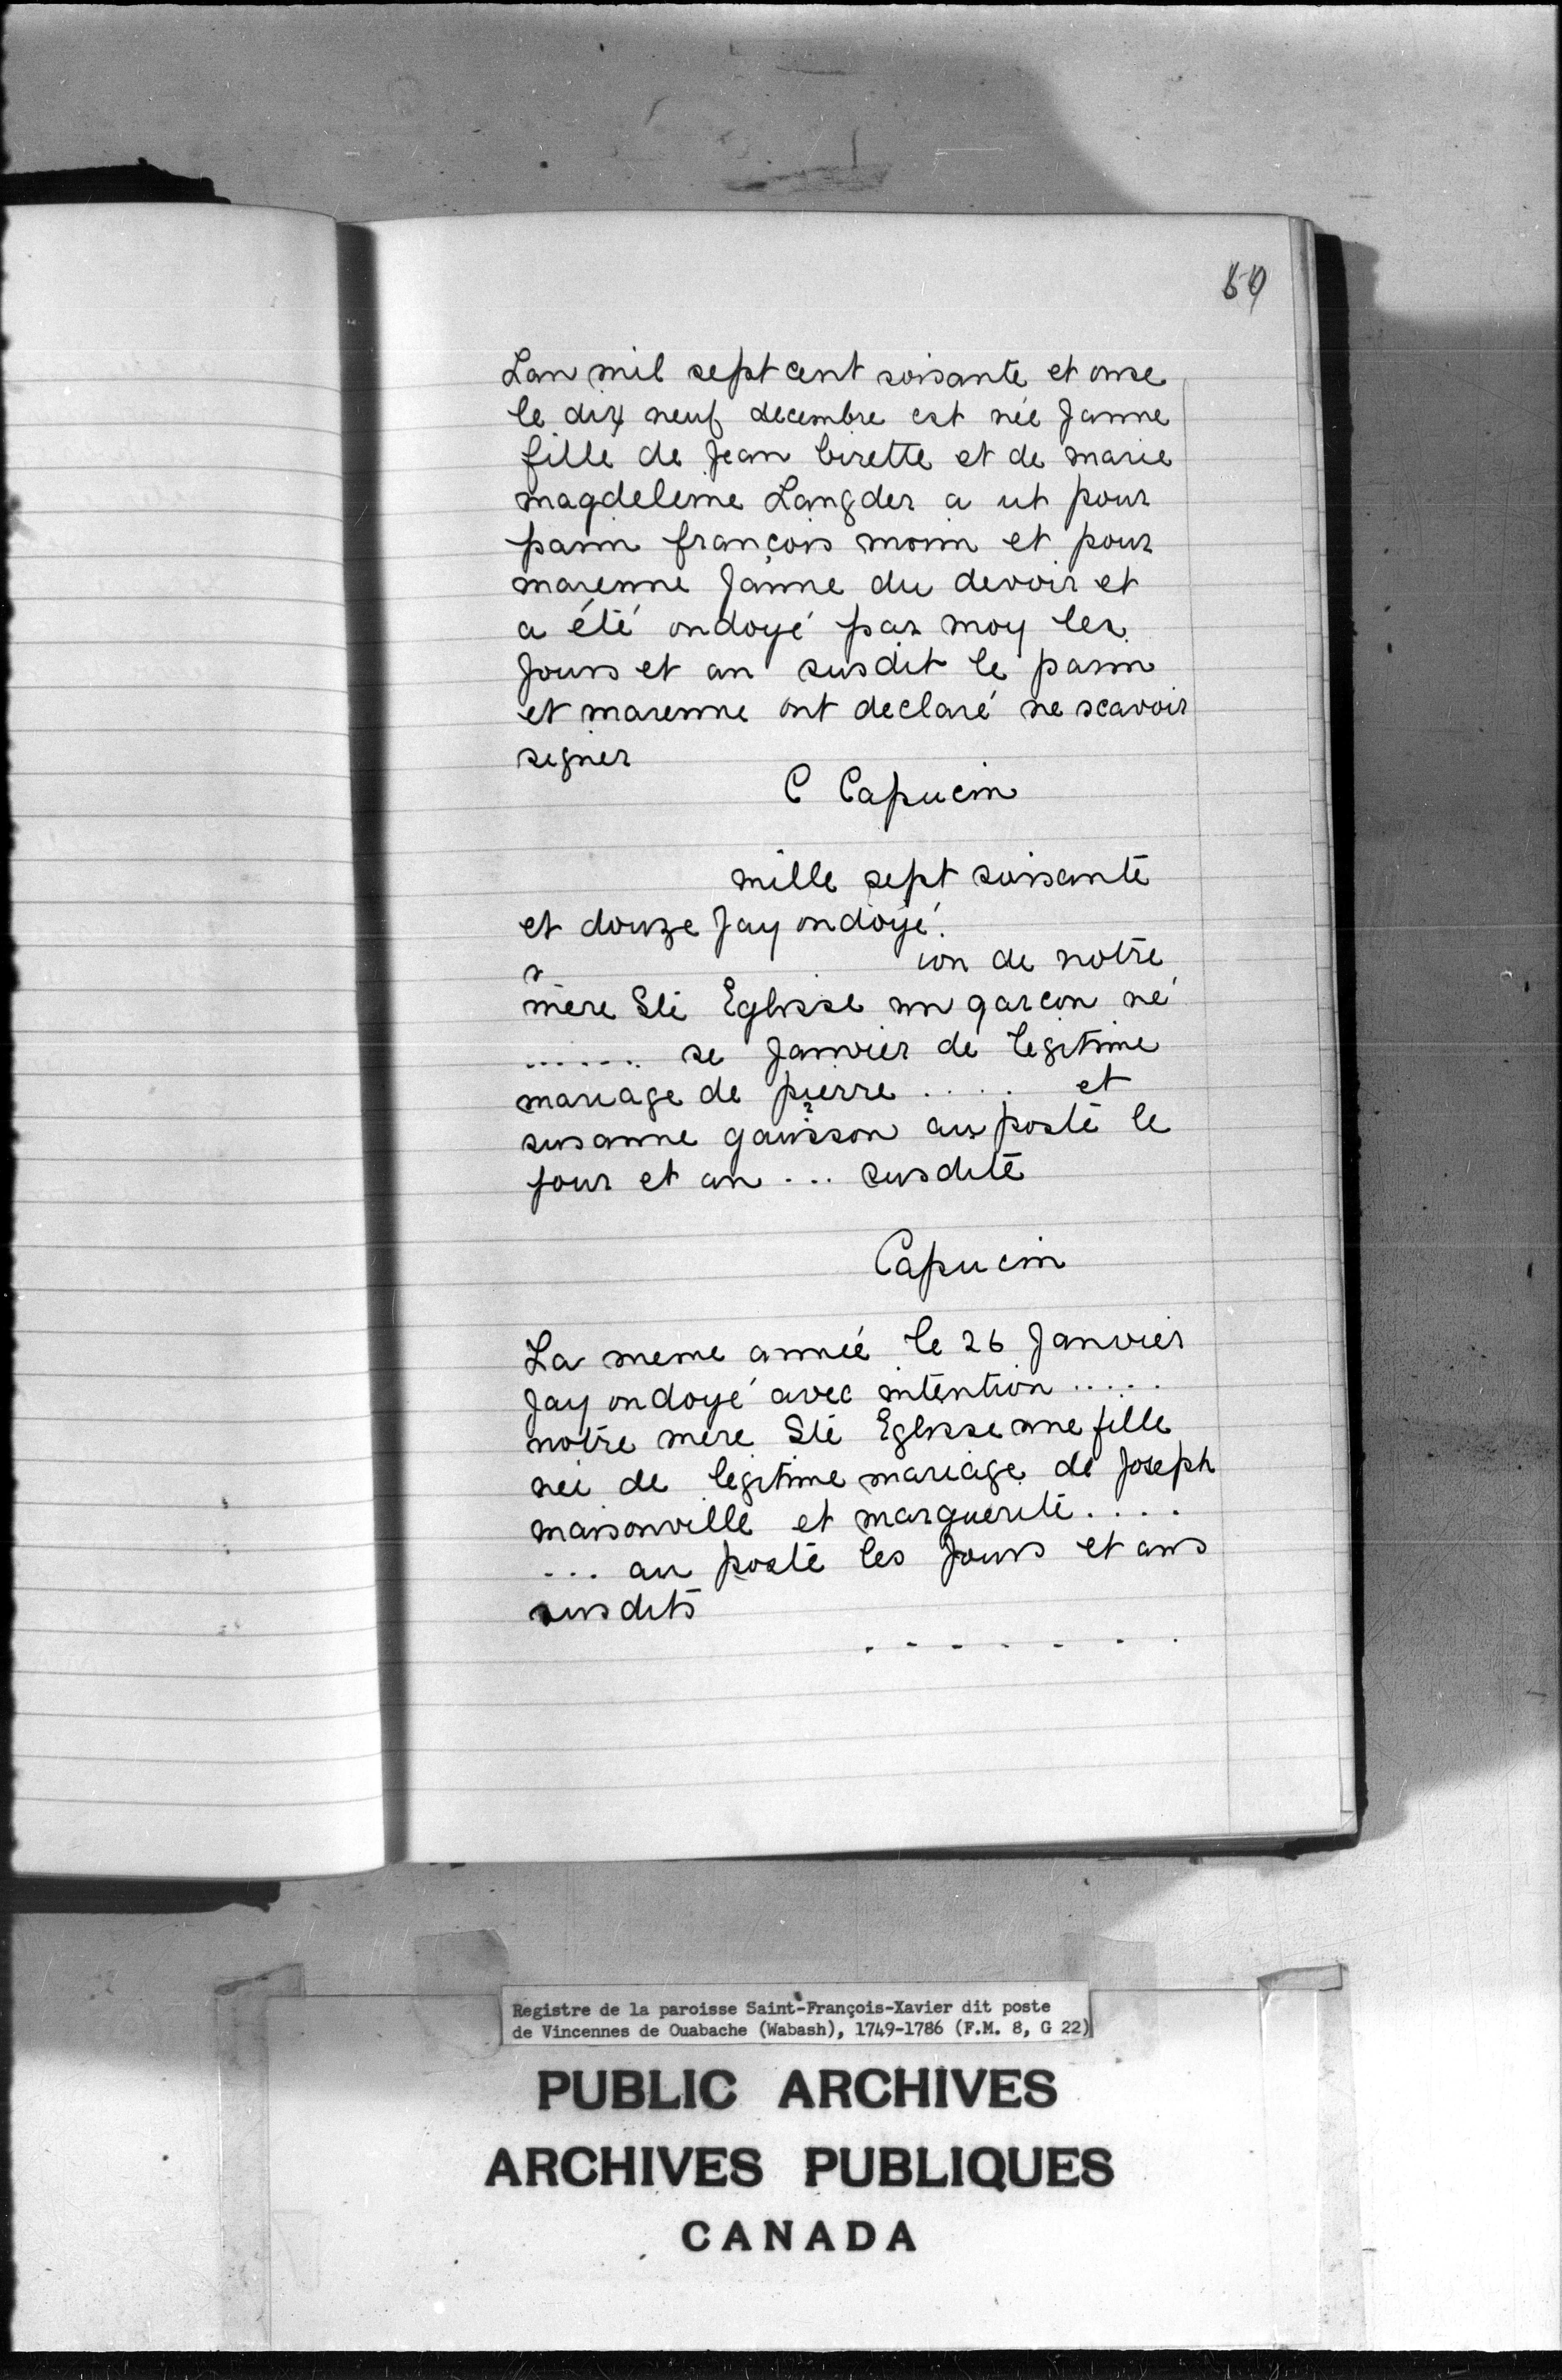 Lan mil sept cent soisante et onse
le dix neuf decembre est née Janne
fille de Jean birette et de marie
magdeleine Langder a ut pour
parin françois morin et pour
marenne Janne du devoir et
a été ondoyé par moy les
Jours et an susdit le parin
et marenne ont declaré ne scavoir
signer
C Capucin
mille sept soissante
et douze Jay ondoyé
ion de notre
mère Ste Eglisse un garcon né
...... se Janvier de legitime
mariage de pierre ..... et
susanne gauisson au poste le
jour et an ... susdite
Capucin
La meme année le 26 Janvier
Jay ondoyé avec intention .....
notre mere Ste Eglisse une fille
née de legitime mariage de Joseph
maisonville et marguerite ....
... au poste les Jours et ans
susdits
. - - - - - .
Registre de la paroisse Saint-François-Xavier dit poste
de Vincennes de Ouabache (Wabash), 1749-1786 (F.M. 8, G 22)
PUBLIC ARCHIVES
ARCHIVES PUBLIQUES
CANADA